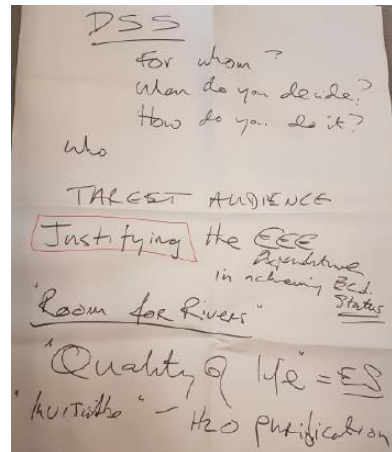 DSS
For whom?
When do you decide?
How do you do it?
Who
TARGET AUDIENCE
Justifying the €€€
Expenditure
in achieving
Status
"Room for Rivers"
"Quality of life" = ES
H2O purification